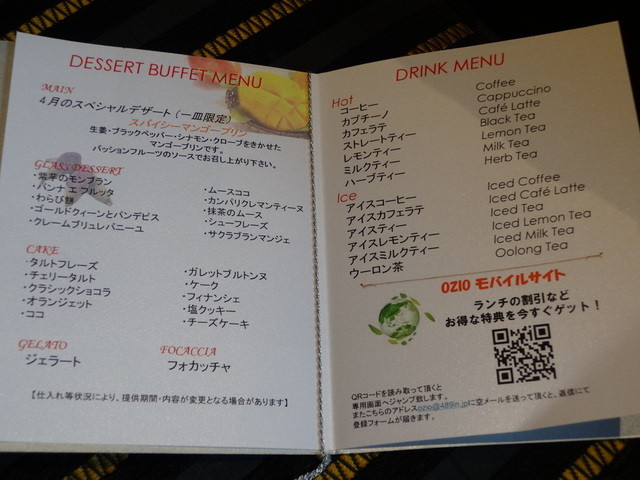 DESSERT BUFFET MENU
MAIN
4月のスペシャルデザート(一皿限定)
スパイシーマンゴープリン
生姜・ブラックペッパー・シナモン・クローブをきかせた
マンゴープリンです。
パッションフルーツのソースでお召し上がり下さい。
GLASS DESSERT
・紫芋のモンブラン
・パンナ エ フルッタ
・わらび餅
・ゴールドクィーンとパンデピス
・クレームブリュレバニーユ
・ムースココ
・カンパリクレマンティーヌ
・抹茶のムース
・シューフレーズ
・サクラブランマンジェ
CAKE
・タルトフレーズ
・チェリータルト
・クラシックショコラ
・オランジェット
・ココ
・ガレットブルトンヌ
・ケーク
・フィナンシェ
・塩クッキー
・チーズケーキ
GELATO
ジェラート
FOCACCIA
フォカッチャ
【仕入れ等状況により、提供期間・内容が変更となる場合があります】
DRINK MENU
Hot
コーヒー Coffee
カプチーノ Cappuccino
カフェラテ Café Latte
ストレートティー Black Tea
レモンティー Lemon Tea
ミルクティー Milk Tea
ハーブティー Herb Tea
Ice
アイスコーヒー Iced Coffee
アイスカフェラテ Iced Café Latte
アイスティー Iced Tea
アイスレモンティー Iced Lemon Tea
アイスミルクティー Iced Milk Tea
ウーロン茶 Oolong Tea
OZIO モバイルサイト
ランチの割引など
お得な特典を今すぐゲット!
QRコードを読み取って頂くと
専用画面へジャンプ致します。
またこちらのアドレスozio@489in.jpに空メールを送って頂くと、返信にて
登録フォームが届きます。